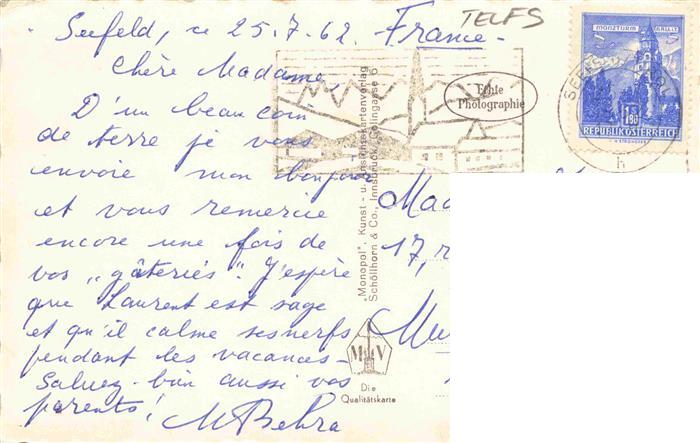 TELFS
Seefeld, ce 25.7.62. France.
Chère Madame,
D'un beau coin
de terre je vous
envoie mon bonjour
et vous remercie
encore une fois de
vos „gâteries". J'espère
que Laurent est sage
et qu'il calme ses nerfs
pendant les vacances -
Saluez-bien aussi vos
parents!
M Behra
Mad
17, r
Mu
„Monopol", Kunst - u. Ansichtskartenverlag
Schöllhorn & Co., Innsbruck, Colingasse 6
Echte
Photographie
MONZTURM HALL I.T.
S 1.80
REPUBLIK ÖSTERREICH
h
M V
Die
Qualitätskarte